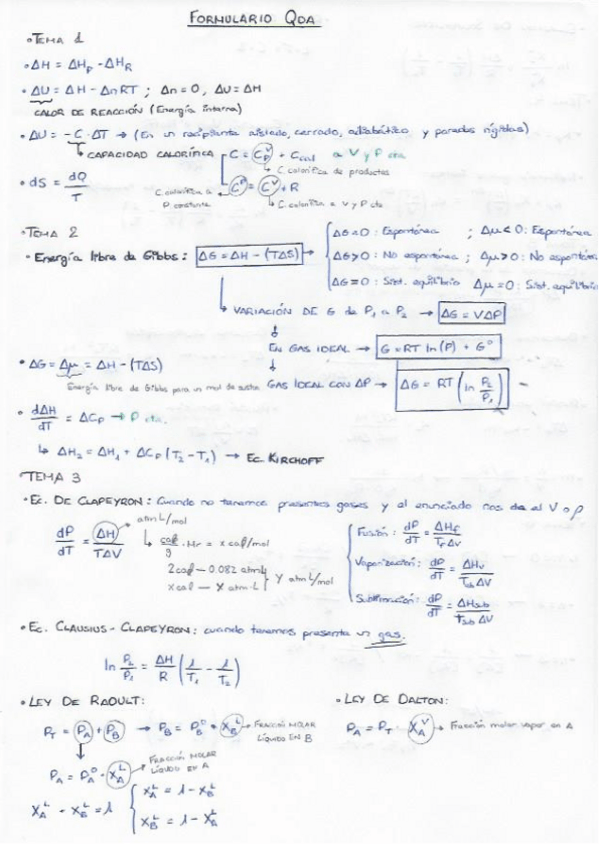 FORMULARIO QOA
• TEMA 1
• ΔH = ΔHp - ΔHR
• ΔU = ΔH - ΔnRT ; Δn = 0, ΔU = ΔH
CALOR DE REACCIÓN (Energía interna)
• ΔU = -C · ΔT → (En un recipiente aislado, cerrado, adiabático y paredes rígidas)
CAPACIDAD CALORÍFICA C = C_P^V + Ccal a V y P cte
C. calorífica de productos
• dS = dQ/T
C. calorífica a P constante C^P = C^V + R
C. calorífica a V y P cte
• TEMA 2
• Energía libre de Gibbs: ΔG = ΔH - (TΔS) →
ΔG < 0 : Espontánea ; Δμ < 0 : Espontánea
ΔG > 0 : No espontánea ; Δμ > 0 : No espontánea
ΔG = 0 : Sist. equilibrio Δμ = 0 : Sist. equilibrio
↳ VARIACIÓN DE G de P1 a P2 → ΔG = VΔP
EN GAS IDEAL → G = RT ln(P) + G°
• ΔG = Δμ = ΔH - (TΔS)
Energía libre de Gibbs para un mol de sustan
GAS IDEAL CON ΔP → ΔG = RT (ln P2/P1)
• dΔH/dT = ΔCp → P cte.
↳ ΔH2 = ΔH1 + ΔCp (T2 - T1) → Ec KIRCHOFF
TEMA 3
• Ec. DE CLAPEYRON: Cuando no tenemos presentes gases y el enunciado nos da el V o ρ
dP/dT = ΔH/TΔV
atm L/mol
↳ cal/g · Mr = x cal/mol
2 cal — 0.082 atm L
x cal — y atm·L
y atm L/mol
Fusión: dP/dT = ΔHf/Tf ΔV
Vaporización: dP/dT = ΔHv/Teb ΔV
Sublimación: dP/dT = ΔHsub/Tsub ΔV
• Ec. CLAUSIUS - CLAPEYRON: cuando tenemos presente un gas.
ln P2/P1 = ΔH/R (1/T1 - 1/T2)
• LEY DE RAOULT:
PT = PA + PB → PB = PB° · XB^L → FRACCIÓN MOLAR LÍQUIDO EN B
PA = PA° · XA^L → FRACCIÓN MOLAR LÍQUIDO EN A
XA^L - XB^L = 1
XA^L = 1 - XB^L
XB^L = 1 - XA^L
• LEY DE DALTON:
PA = PT · XA^V → Fracción molar vapor en A